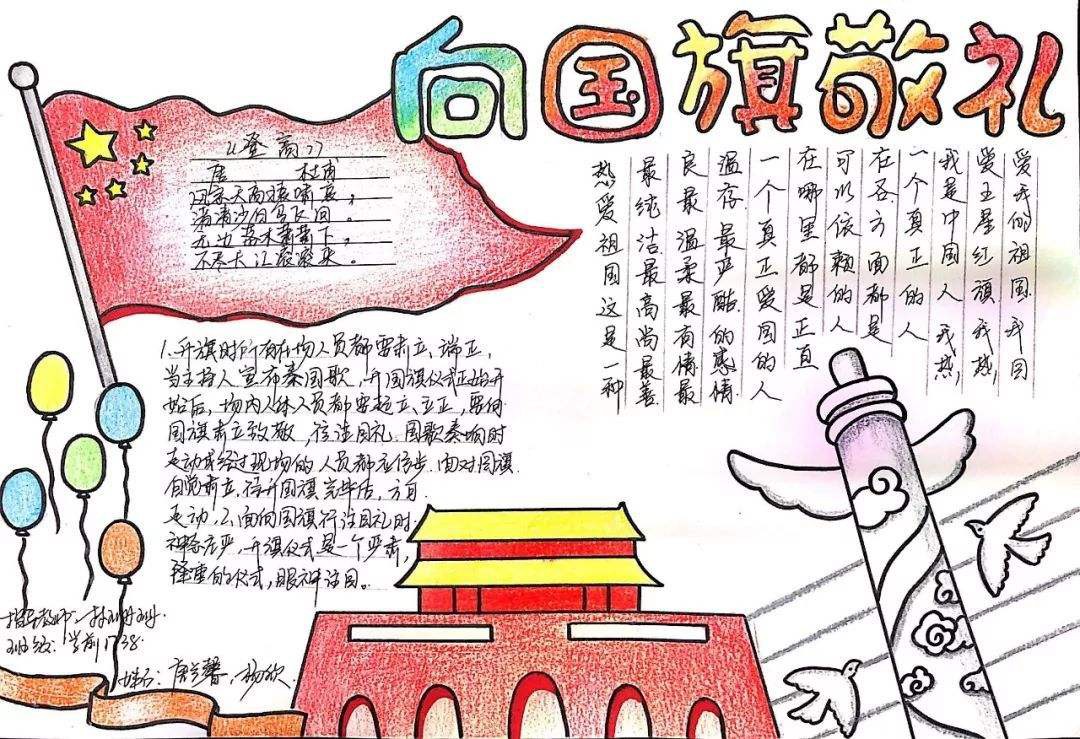 向国旗敬礼
《登高》
唐 杜甫
风急天高猿啸哀，
渚清沙白鸟飞回。
无边落木萧萧下，
不尽长江滚滚来。
爱我的祖国 我国
爱五星红旗 我热
我是中国人 我热，
一个真正的人
在各方面都是
可以依赖的人
在哪里都是正直
一个真正爱国的人
温存 最严酷的感情
良最温柔最有情最
最纯洁最高尚最善
热爱祖国这是一种
1.升旗时所有在场人员都要肃立、端正，
当主持人宣布奏国歌，升国旗仪式正始开
始后，场内人体人员都要起立、立正，要向
国旗肃立致敬，行注目礼.国歌奏响时
走动或经过现场的人员都应停步.面对国旗
自觉肃立.待升国旗完毕后，方可
走动.2.面向国旗行注目礼时.
神态庄严，升旗仪式是一个严肃，
隆重的仪式，眼神注目。
指导教师
班级：学前1738.